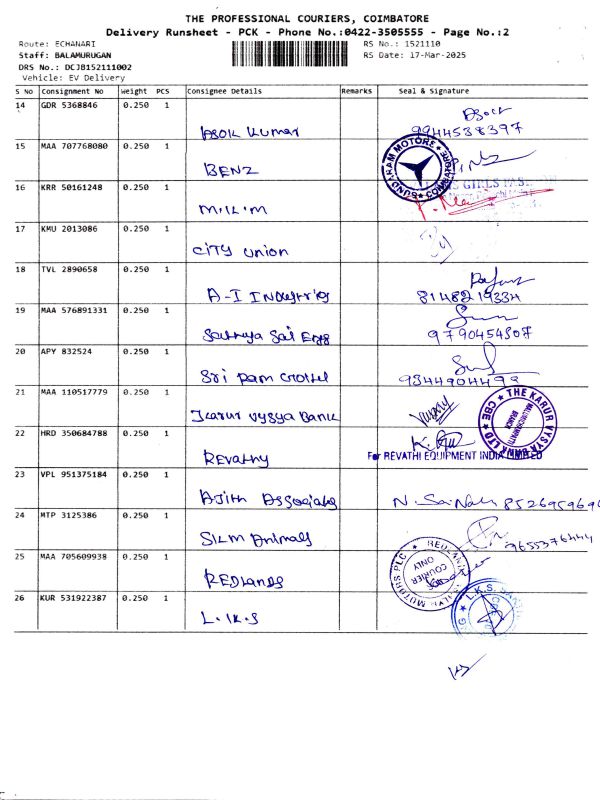 THE PROFESSIONAL COURIERS, COIMBATORE
Delivery Runsheet - PCK - Phone No.:0422-3505555 - Page No.:2
Route: ECHANARI RS No.: 1521110
Staff: BALAMURUGAN RS Date: 17-Mar-2025
DRS No.: DCJB152111002
Vehicle: EV Delivery
S No Consignment No Weight PCS Consignee Details Remarks Seal & Signature
14 GDR 5368846 0.250 1
Asok Kumar 9944538397
15 MAA 707768080 0.250 1
BENZ
16 KRR 50161248 0.250 1
M.I.M
17 KMU 2013086 0.250 1
City union
18 TVL 2890658 0.250 1
A-I Industries 8148219334
19 MAA 576891331 0.250 1
Sathya Sai Engg 9790454507
20 APY 832524 0.250 1
Sri Ram 9344904498
21 MAA 110517779 0.250 1
Karur Vysya Bank
THE KARUR VYSYA BANK LTD CBE
22 HRD 350684788 0.250 1
Revathy For REVATHI EQUIPMENT INDIA LIMITED
23 VPL 951375184 0.250 1
Ajith Associates N. Sai Nath
24 MTP 3125386 0.250 1
SKM Animals 9655376444
25 MAA 705609938 0.250 1
REDlands
COURIER ONLY
26 KUR 531922387 0.250 1
L.K.S